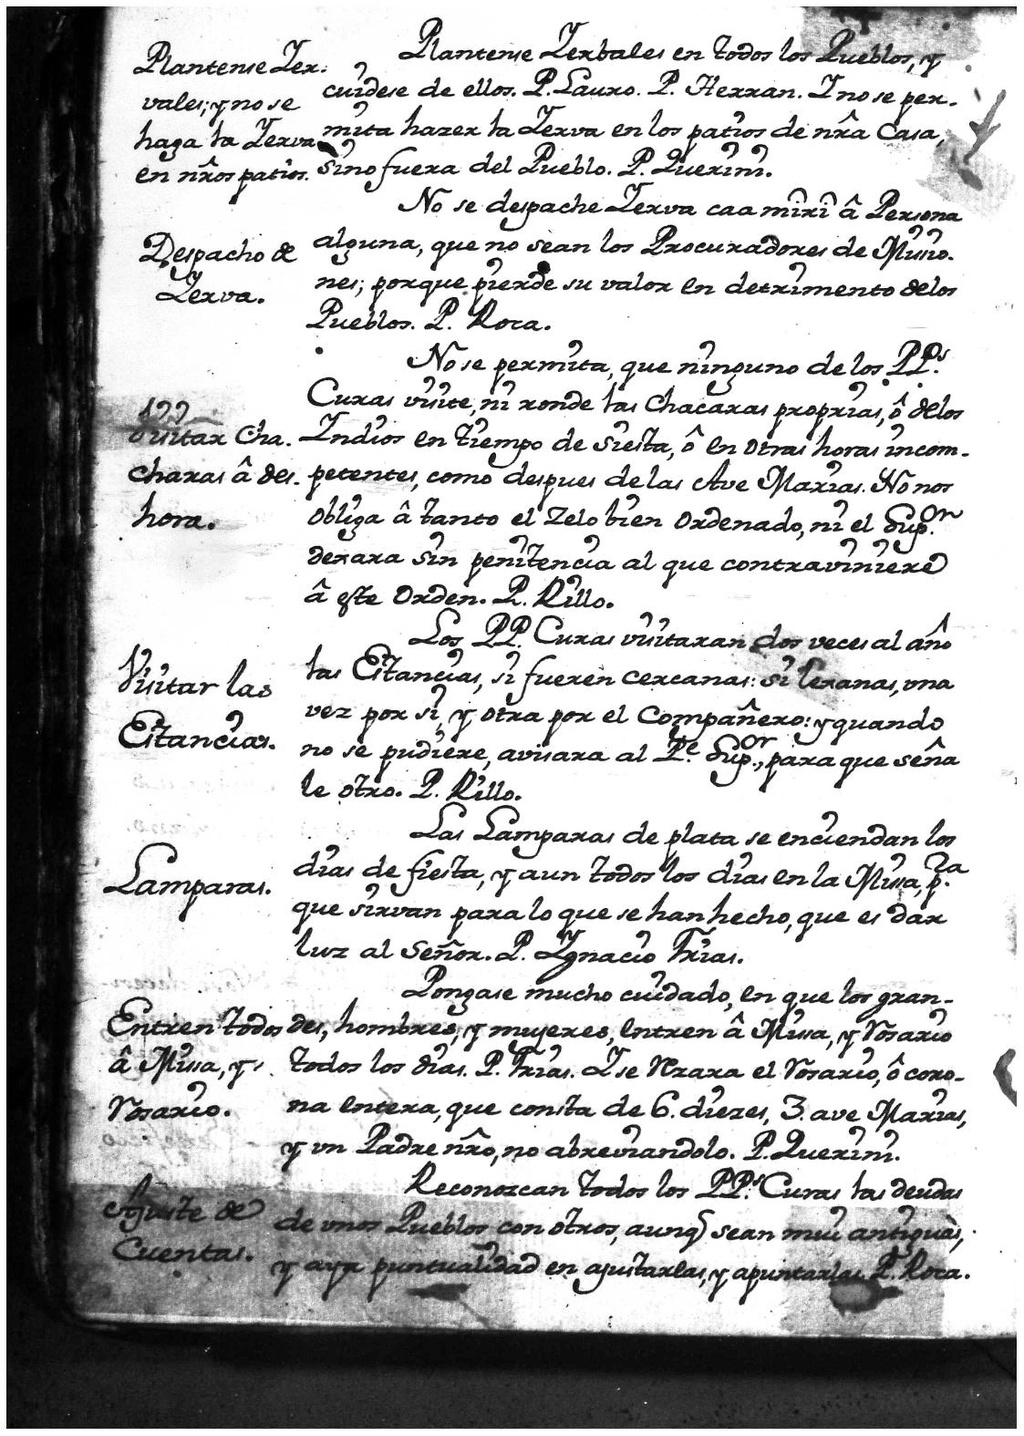 Plantense Yer-
vales; y no se
haga la Yerva
en nr̃os patios.
Plantense Yerbales en todos los Pueblos, y
cuidese de ellos. P. Lauro. P. Herran. Y no se per-
mita hazer la Yerva en los patios de nr̃a Casa,
sino fuera del Pueblo. P. Querini.
Despacho de
Yerva.
No se despache Yerva caa mirî â Persona
alguna, que no sean los Procuradores de Missio-
nes; porque pierde su valor en detrimento de los
Pueblos. P. Roca.
122
Visitar Cha-
charas â des-
hora.
No se permita, que ninguno de los PP.s
Curas visite, ni ronde las Chacaras proprias, ô de los
Indios en tiempo de siesta, ô en otras horas incom-
petentes, como despues de las Ave Marias. No nos
obliga â tanto el Zelo bien ordenado, ni el Sup.or
dexara sin penitencia al que contraviniere
â este Orden. P. Rillo.
Visitar las
Estancias.
Los PP. Curas visitaran dos veces al año
las Estancias, si fueren cercanas: si lexanas, una
vez por si, y otra por el Compañero: y quando
no se pudiere, avisara al P.e Sup.or, para que seña
le otro. P. Rillo.
Lamparas.
Las Lamparas de plata se enciendan los
dias de fiesta, y aun todos los dias en la Missa, p.ra
que sirvan para lo que se han hecho, que es dar
luz al Señor. P. Ygnacio Frias.
Entren todos
â Missa, y
Rosario.
Pongase mucho cuidado, en que los gran-
des, hombres, y mujeres, entren â Missa, y Rosario
todos los dias. P. Frias. Y se Rezara el Rosario, ô coro-
na entera, que consta de 6. diezes, 3. ave Marias,
y un Padre nr̃o, no abreviandolo. P. Querini.
Ajuste de
Cuentas.
Reconozcan todos los PP.s Curas las deudas
de unos Pueblos con otros, aunq̃ sean mui antiguas,
y aya puntualidad en ajustarlas, y apuntarlas. P. Roca.